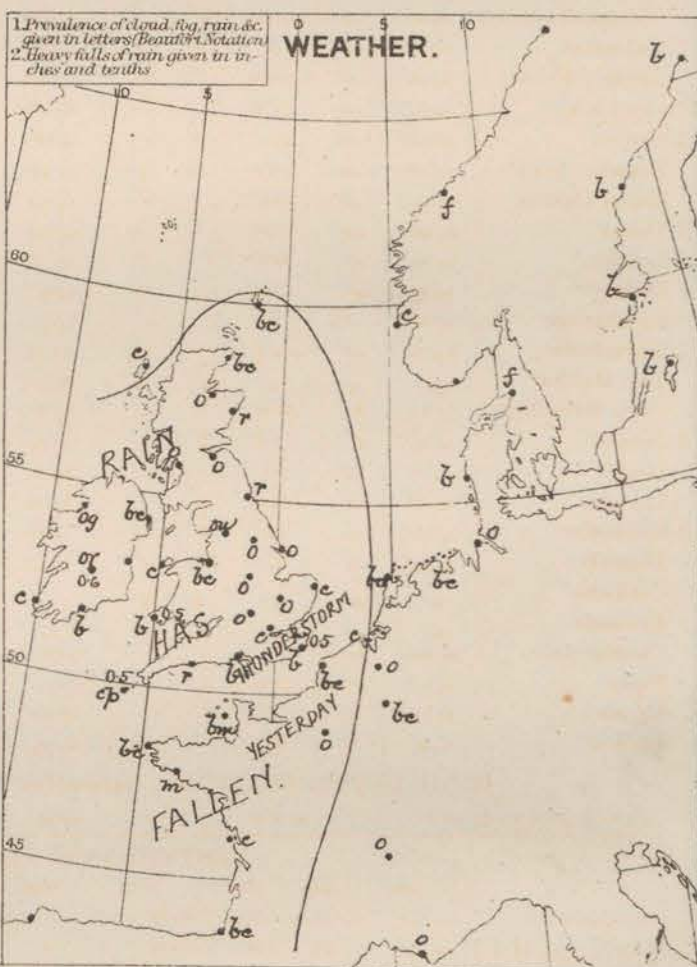 1. Prevalence of cloud, fog, rain &c.
given in letters (Beaufort Notation)
2. Heavy falls of rain given in in-
ches and tenths
WEATHER.
10
5
0
5
10
b
b
f
60
bc
c
b
c
bc
b
f
o
r
RAIN
o
55
r
b
og
bc
o
o
o
or
0.6
c
bc
o
bc
bc
c
b
b
0.5
o
o
c
HAS
c
THUNDERSTORM
0.5
c
50
0.5
r
b
b
bc
o
cp
bc
bm
YESTERDAY
o
bc
m
FALLEN.
c
o
45
bc
o